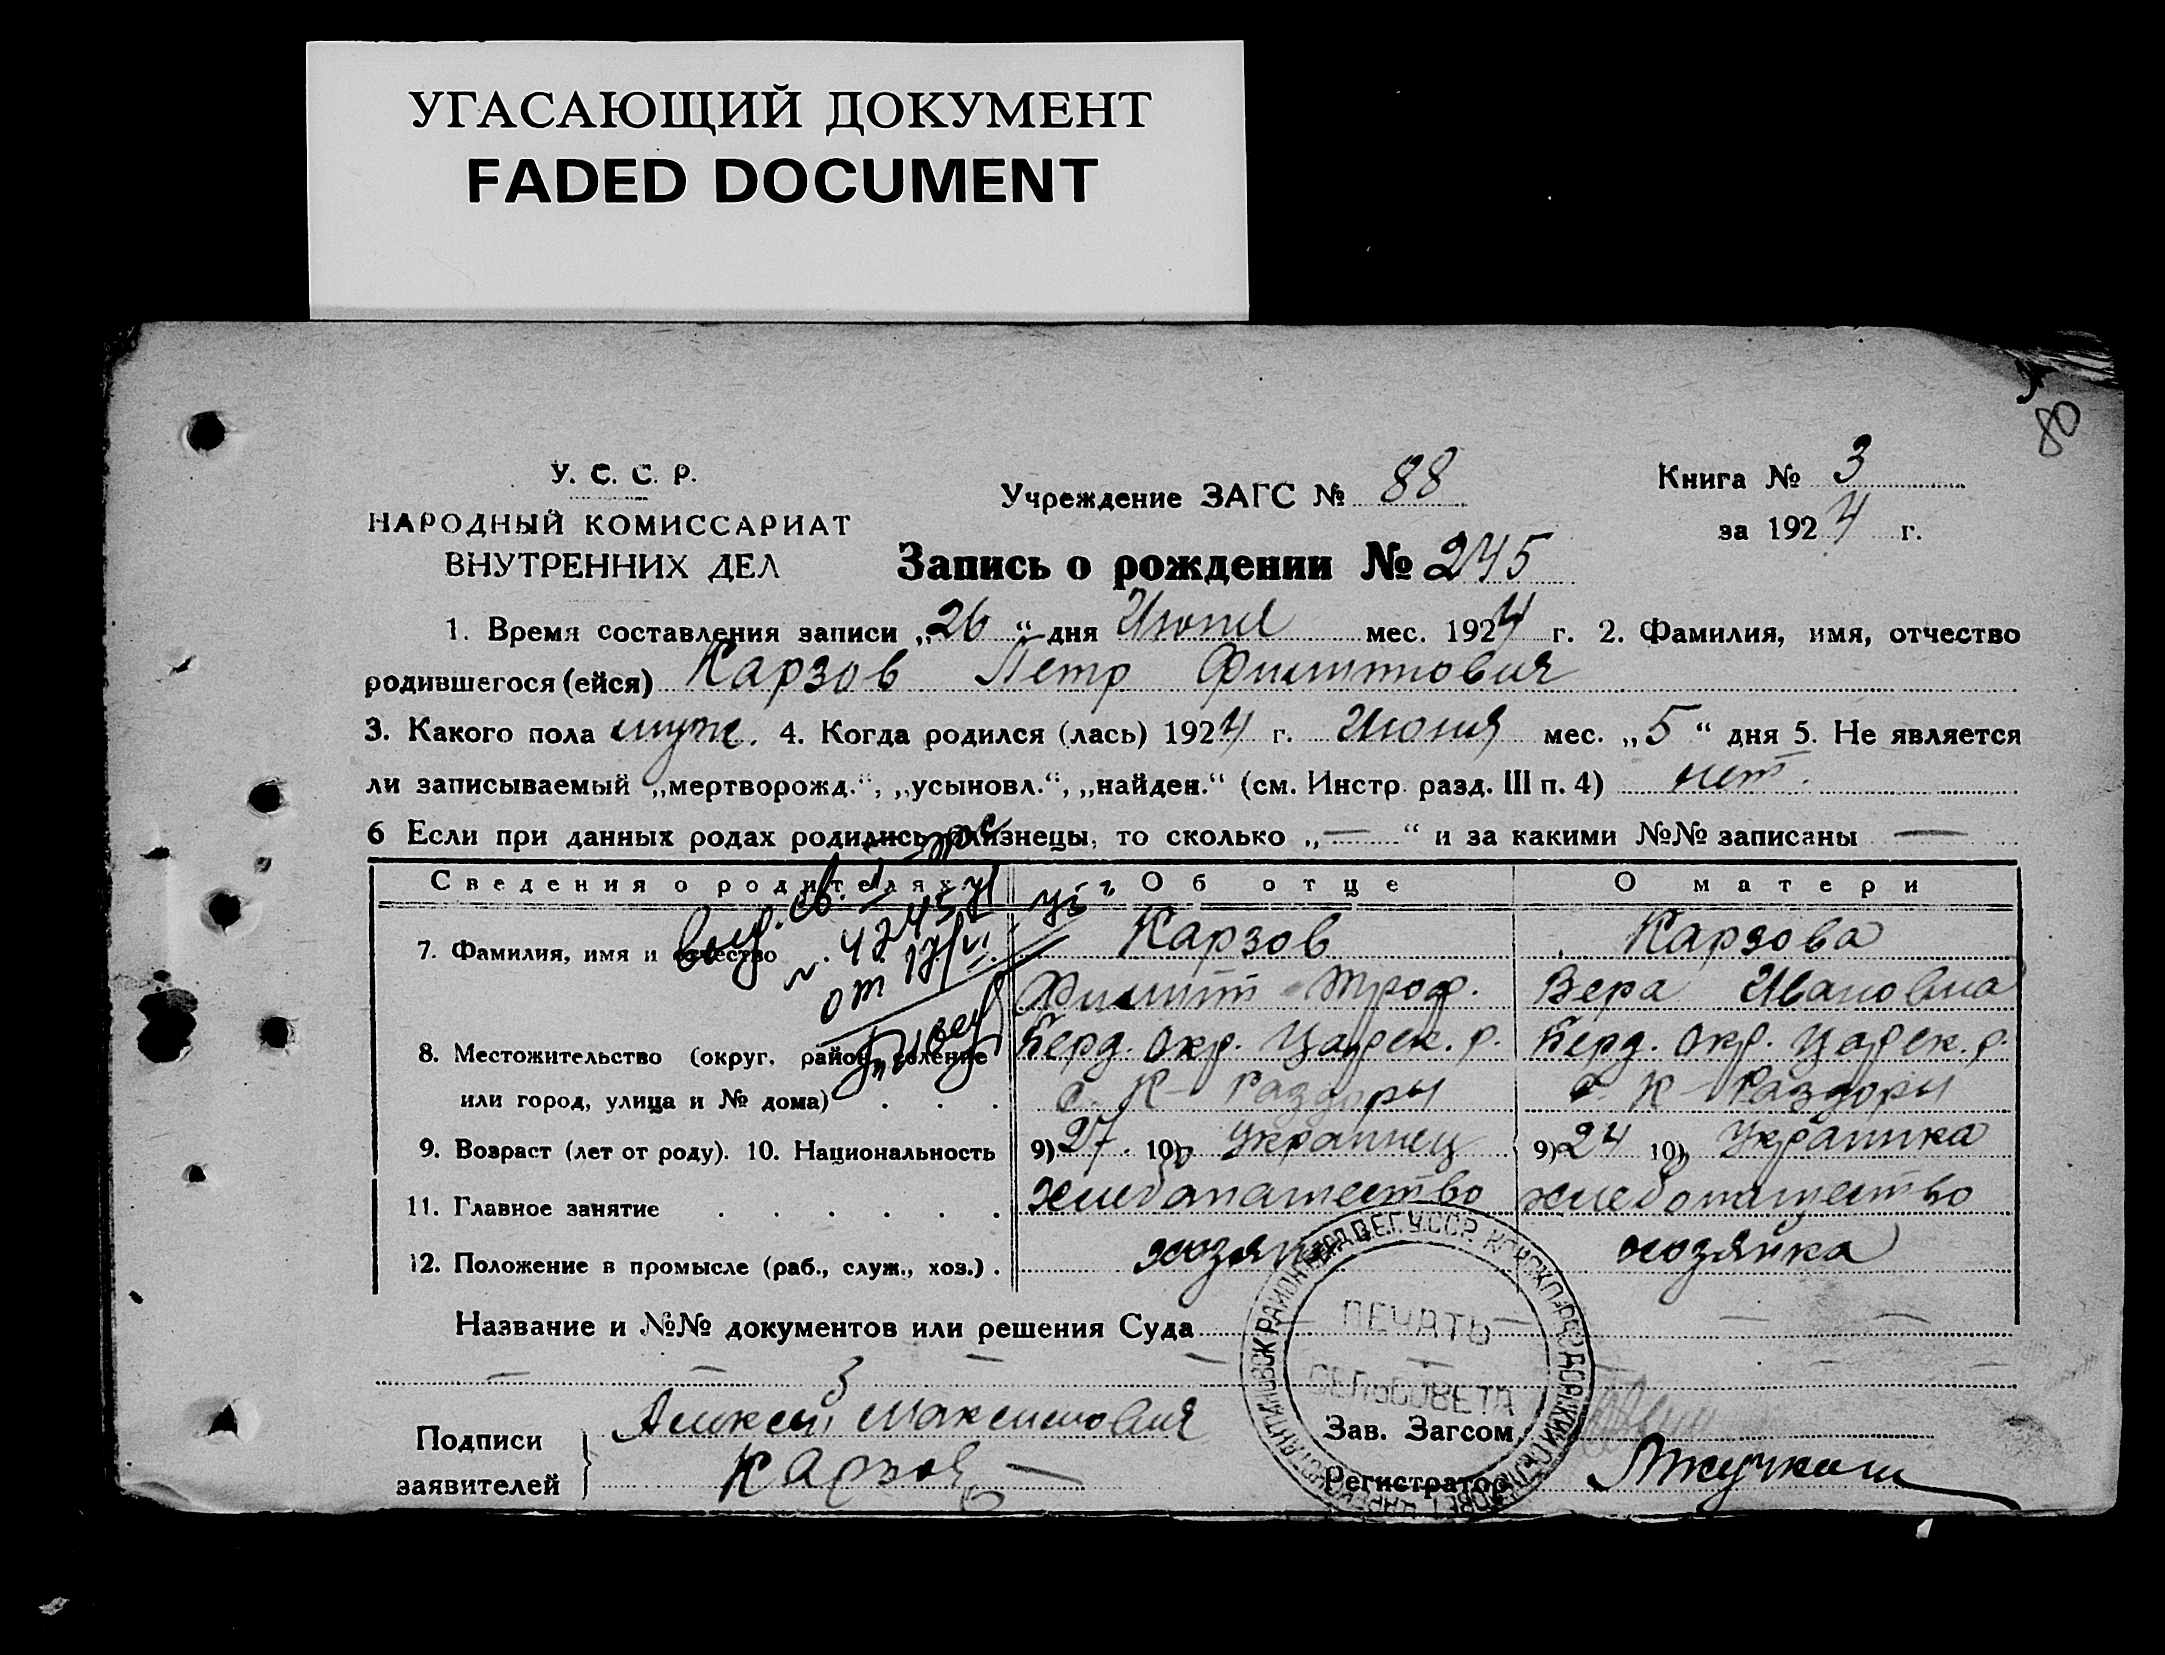 УГАСАЮЩИЙ ДОКУМЕНТ
FADED DOCUMENT
80
У. С. С. Р.
НАРОДНЫЙ КОМИССАРИАТ
ВНУТРЕННИХ ДЕЛ
Учреждение ЗАГС № 88
Книга № 3
за 1924 г.
Запись о рождении № 245
1. Время составления записи „26“ дня Июня мес. 1924 г. 2. Фамилия, имя, отчество
родившегося (ейся) Карзов Петр Филиппович
3. Какого пола муж. 4. Когда родился (лась) 1924 г. Июня мес. „5“ дня 5. Не является
ли записываемый „мертворожд.“, „усыновл.“, „найден.“ (см. Инстр. разд. III п. 4) нет.
6 Если при данных родах родились близнецы, то сколько „—“ и за какими №№ записаны —
Сведения о родителях Об отце О матери
7. Фамилия, имя и отчество Карзов Карзова
Филипп Троф. Вера Ивановна
8. Местожительство (округ, район, селение Берд. окр. Царек. р. Берд. окр. Царек. р.
или город, улица и № дома) . . . с. К-Раздоры с. К-Раздоры
9. Возраст (лет от роду). 10. Национальность 9) 27. 10) Украинец 9) 24 10) Украинка
11. Главное занятие . . . . . . хлебопашество хлебопашество
12. Положение в промысле (раб., служ., хоз.) . хозяин хозяйка
Название и №№ документов или решения Суда — — —
Подписи заявителей } Алексей Максимович
Карзов —
Зав. Загсом
Регистратор
ПЕЧАТЬ
СЕЛЬСОВЕТА